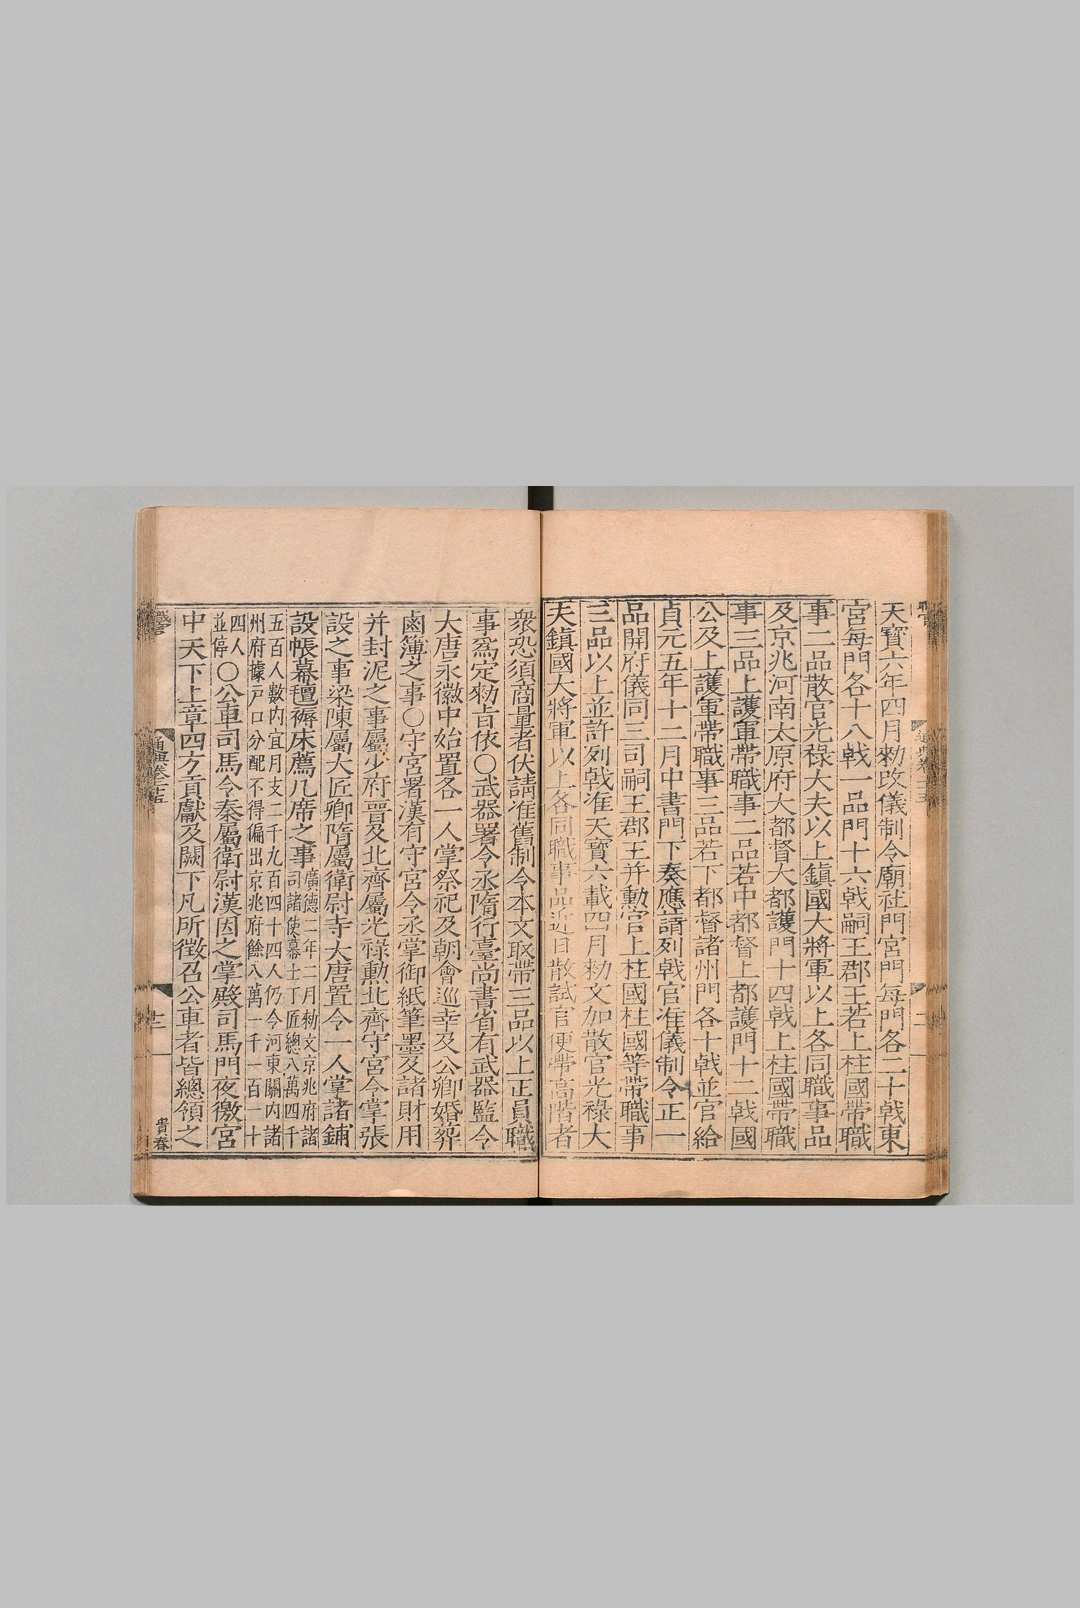 天寶六年四月勑改儀制令廟社門宮門每門各二十戟東
宮每門各十八戟一品門十六戟嗣王郡王若上柱國帶職
事二品散官光祿大夫以上鎮國大將軍以上各同職事品
及京兆河南太原府大都督大都護門十四戟上柱國帶職
事三品上護軍帶職事二品若中都督上都護門十二戟國
公及上護軍帶職事三品若下都督諸州門各十戟並官給
貞元五年十二月中書門下奏應請列戟官准儀制令正一
品開府儀同三司嗣王郡王并勳官上柱國柱國等帶職事
三品以上並許列戟准天寶六載四月勑文加散官光祿大
夫鎮國大將軍以上各同職事品近日散試官便帶高階者
衆恐須商量者伏請准舊制令本文取帶三品以上正員職
事爲定勑旨依〇武器署令丞隋行臺尚書省有武器監令
大唐永徽中始置各一人掌祭祀及朝會巡幸及公卿婚葬
鹵簿之事〇守宮署漢有守宮令丞掌御紙筆墨及諸財用
并封泥之事屬少府晉及北齊屬光祿勳北齊守宮令掌張
設之事梁陳屬大匠卿隋屬衛尉寺大唐置令一人掌諸鋪
設帳幕氊褥床薦几席之事
廣德二年二月勑文京兆府諸
司諸使幕士丁匠總八萬四千
五百人數內宜月支二千九百四十四人仍令河東關內諸
州府據戶口分配不得偏出京兆府餘八萬一千一百一十
四人
並停
〇公車司馬令秦屬衛尉漢因之掌殿司馬門夜徼宮
中天下上章四方貢獻及闕下凡所徵召公車者皆總領之
通典卷二十五
十二
貴春